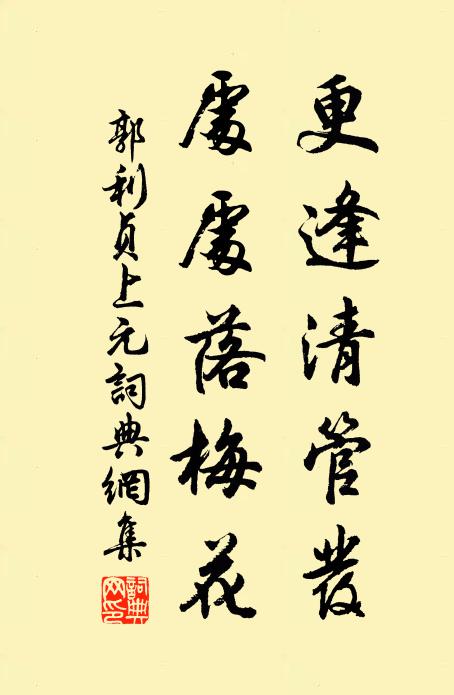 更逢清管發
處處落梅花
郭利貞上元詞典網集
詞典網印